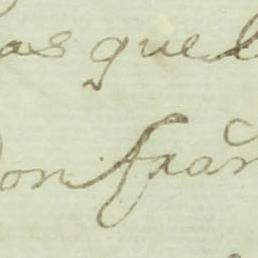 as que
Don fran